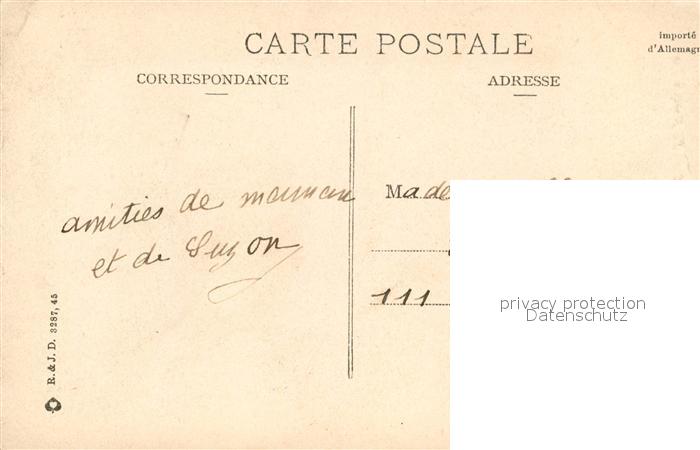 CARTE POSTALE
importé
d'Allemagn
CORRESPONDANCE
ADRESSE
amitiés de maman
et de Suzon
Made
111
R. & J. D. 3287, 45
privacy protection
Datenschutz